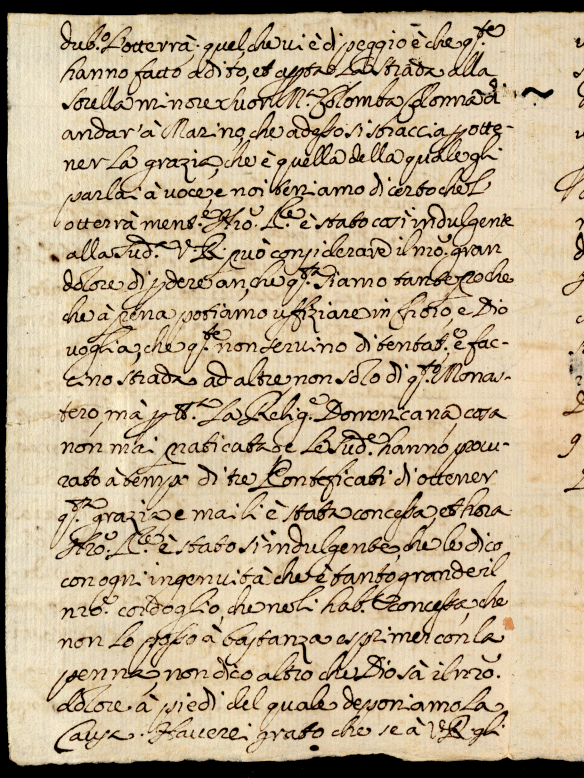 dub.o L'otterrà. quel che vi è di peggio è che q.te
hanno fatto adito, et aptao La strada alla
sorella minore Suor M.a Colomba Colonna di
andar' à Marino, che adesso si straccia p otte-
ner La grazia, che è quella della quale gli
parlai à voce, e noi teniamo di certo che L'
otterrà ment.e Nro. S.re è stato così indulgente
alla sud.a V.R. può considerare il nro. gran
dolore di pdere anche q.ta siamo tante poche
che à pena potiamo uffiziare in choro, e Dio
voglia, che q.te non servino di tentat.e e fac-
cino strada ad altre non solo di q.to Monas-
tero, mà p tt.a La Relig.e Domenicana cosa
non mai praticata, e Le sud.e hanno procu-
rato à tempi di tre Ponteficati di ottener
q.ta grazia e mai li è stata concessa, et hora
Nro. S.re è stato sì indulgente, che le dico
con ogni ingenuità che è tanto grande il
nro. cordoglio, che ne li hab. concessa, che
non Lo posso à bastanza esprimer con la
penna, non dico altro che Dio sà il nro.
dolore. à piedi del quale deponiamo La
Causa. Haverei grato che se à V.R. gli